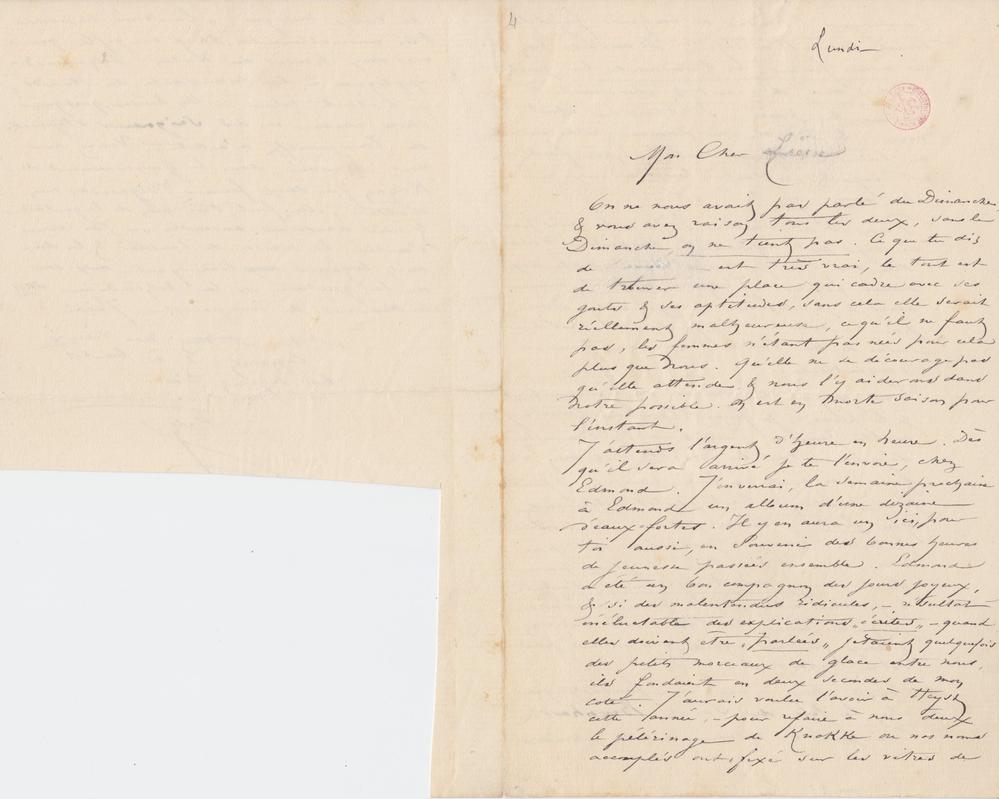 4
Lundi
Mon Cher Liesse
On ne nous avait pas parlé du Dimanche
& vous avez raison tous les deux, sans le
Dimanche, on ne tient pas. Ce que tu dis
de est très vrai, le tout est
de trouver une place qui cadre avec ses
gouts & ses aptitudes, sans cela elle serait
réellement malheureuse, ce qu'il ne faut
pas, les femmes n'étant pas nées pour cela
plus que nous. Qu'elle ne se décourage pas
qu'elle attende & nous l'y aiderons dans
notre possible. On est en morte saison pour
l'instant.
J'attends l'argent d'heure en heure. Dès
qu'il sera arrivé je te l'envoie, chez
Edmond. J'enverrai, la semaine prochain
à Edmond un album d'une dizaine
d'eaux-fortes. Il y en aura un ici, pour
toi aussi, en souvenir des bonnes heures
de jeunesse passées ensemble. Edmond
a été un bon compagnon des jours joyeux,
& si des malentendus ridicules, – résultat
inéluctable des explications „écrites„ – quand
elles doivent etre „parlées„ jetaient quelquefois
des petits morceaux de glace entre nous,
ils fondaient en deux secondes de mon
coté. J'aurais voulu l'avoir à Heyst
cette année, – pour refaire à nous deux
le pélérinage de Knokke ou nos noms
accouplés ont fixé sur les vitres de